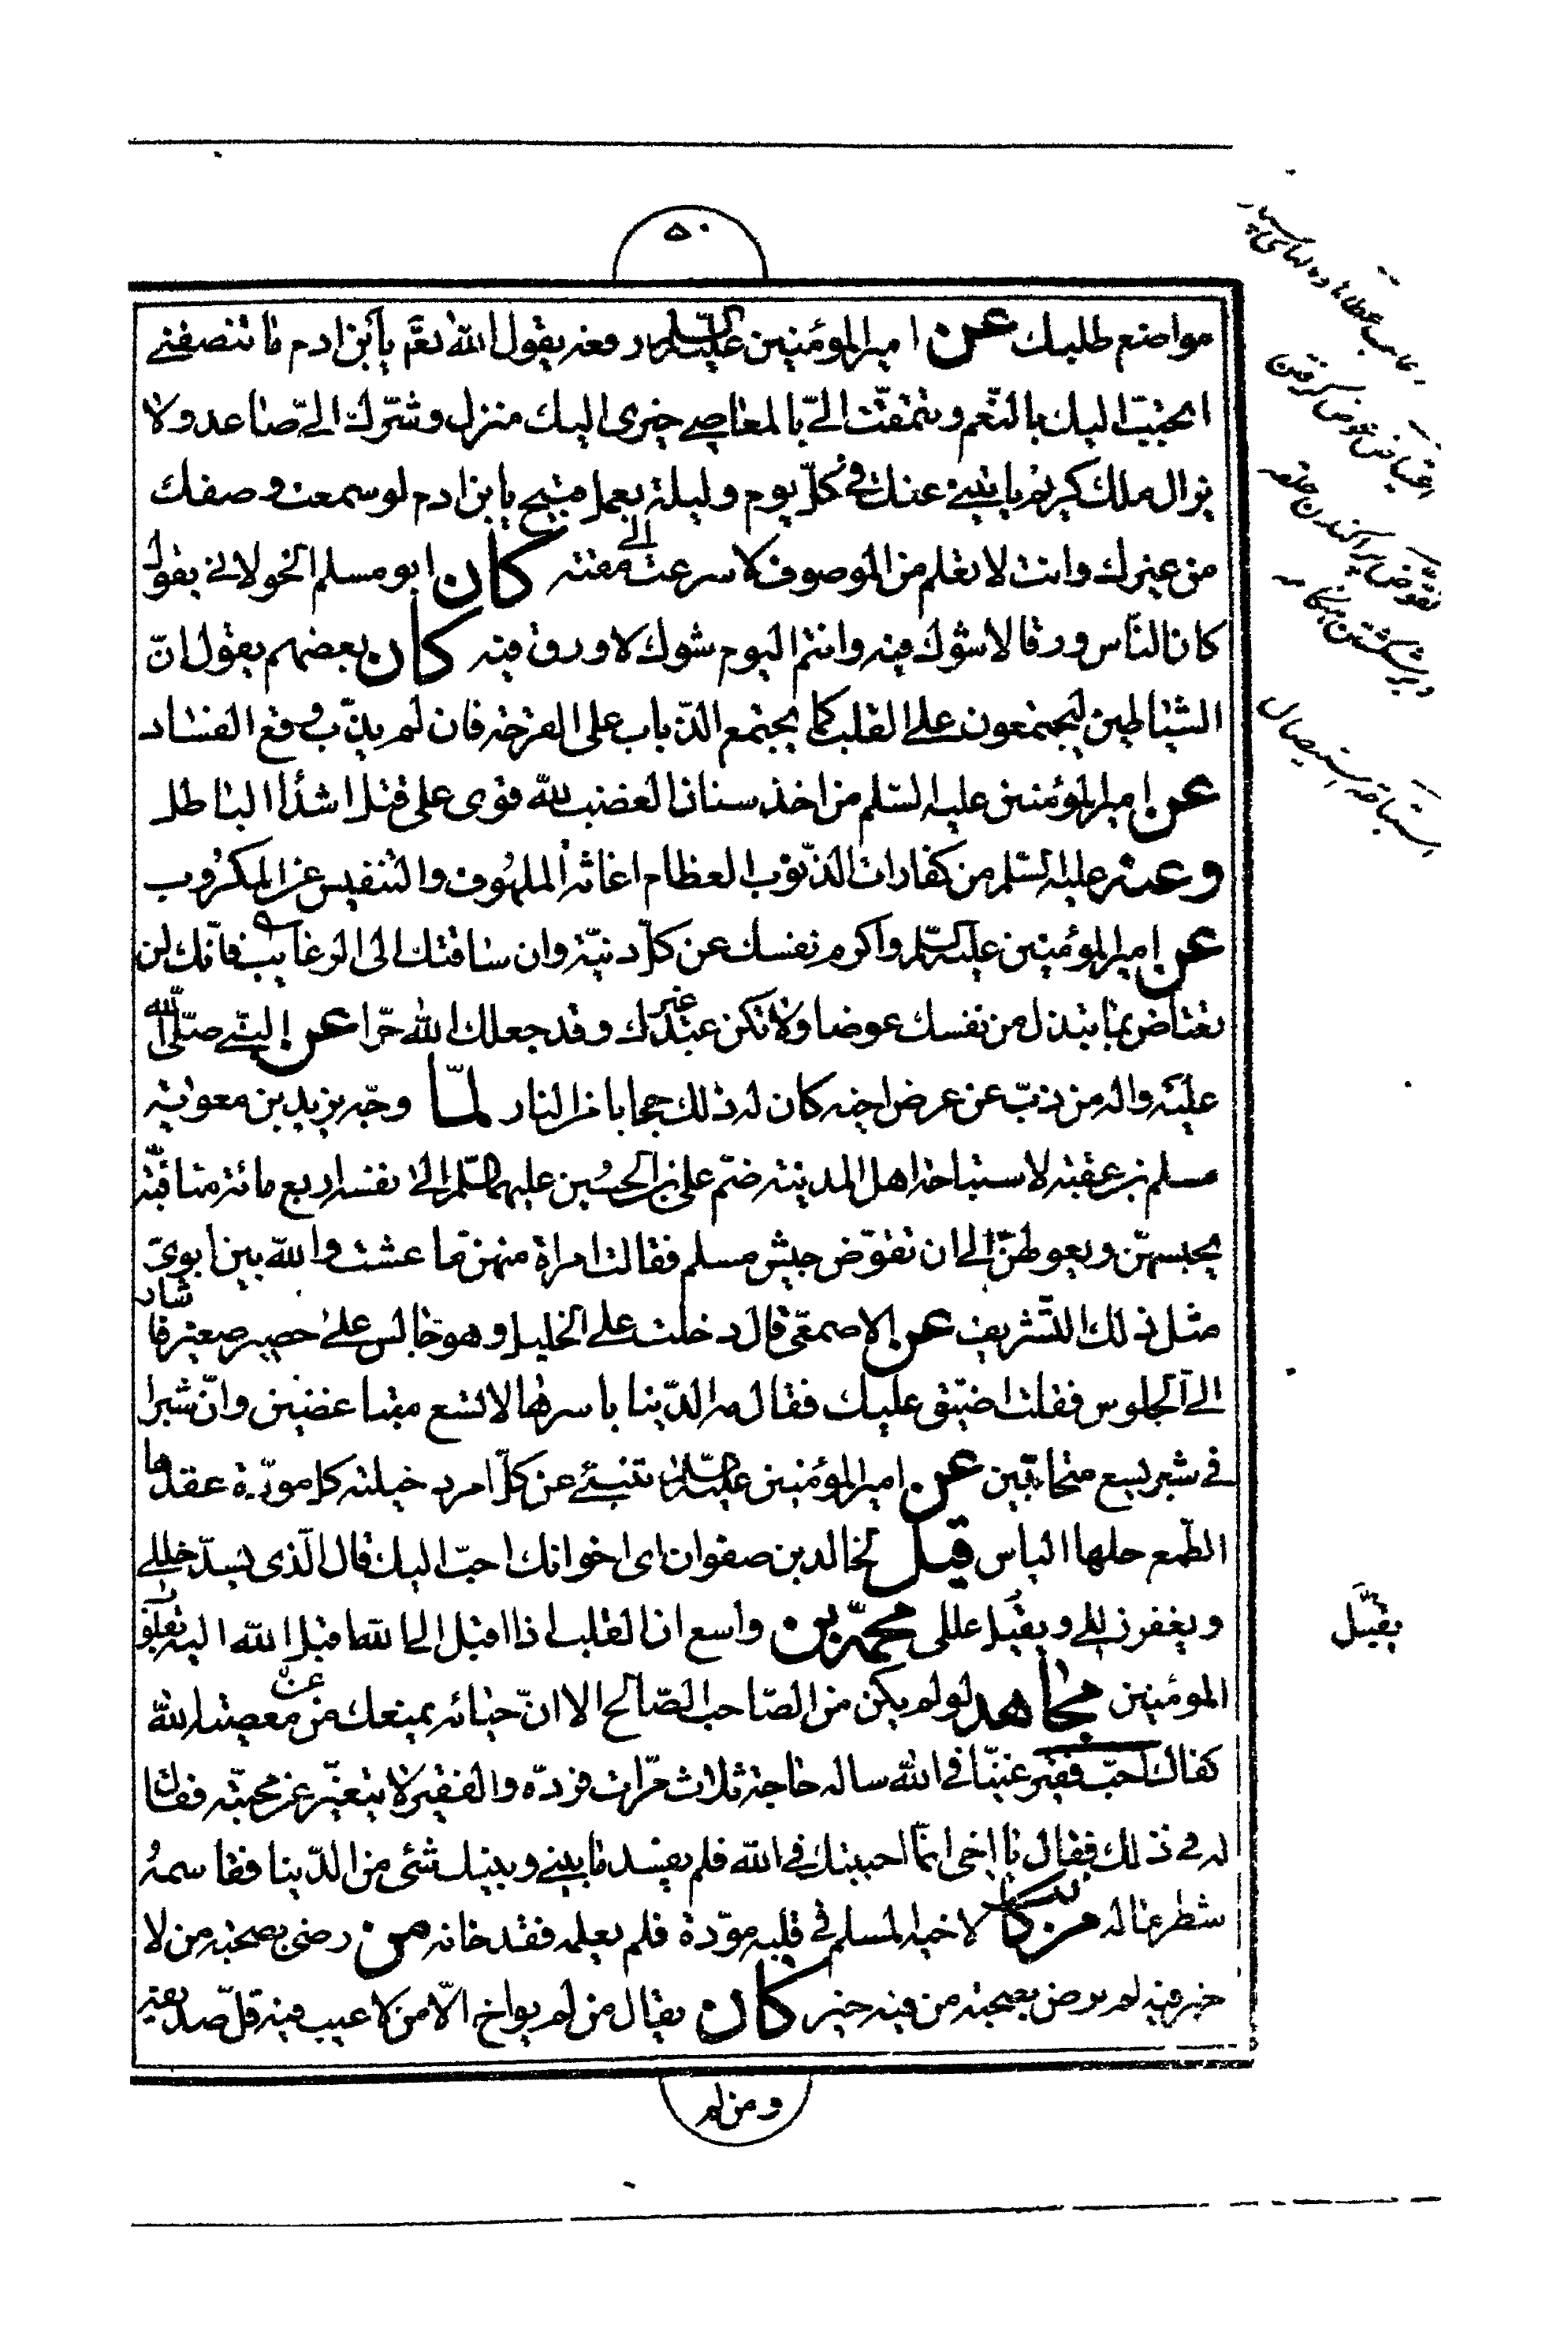 ٥٠
مواضع طلبك عن امير المؤمنين عليه السلم رفعه يقول الله تعم يا بن ادم ما تنصفنى
اتحبّب اليك بالنّعم وتتمقّت الىّ بالمعاصى خيرى اليك منزل وشرّك الىّ صاعد ولا
يزال ملك كريم ياتينى عنك فى كلّ يوم وليلة بعمل قبيح يا بن ادم لو سمعت وصفك
من غيرك وانت لا تعلم من الموصوف لاسرعت الى مقته كان ابو مسلم الخولانى يقول
كان النّاس ورقا لا شوك فيه وانتم اليوم شوك لا ورق فيه كان بعضهم يقول انّ
الشياطين ليجتمعون على القلب كما يجتمع الذّباب على القرحة فان لم يذبّ وقع الفساد
عن امير المؤمنين عليه السّلم من اخذ سنان الغضب للّه قوى على قتل اشدّاء الباطل
وعنه عليه السّلم من كفارات الذّنوب العظام اغاثة الملهوف والتنفيس عن المكروب
عن امير المؤمنين عليه السّلم واكرم نفسك عن كلّ دنيّة وان ساقتك الى الرغايب فانّك لن
تعتاض بما تبذل من نفسك عوضا ولا تكن عبد غيرك وقد جعلك الله حرّا عن النّبى صلّى الله
عليه واله من ذبّ عن عرض اخيه كان له ذلك حجابا من النار لمّا وجّه يزيد بن معوية
مسلم بن عقبة لاستباحة اهل المدينة ضمّ على بن الحسين عليهما السّلم الى نفسه اربع مائة منافيّة
يحبسهنّ ويعولهنّ الى ان تفوّض جيش مسلم فقالت امراة منهن ما عشت والله بين ابوىّ
مثل ذلك التّشريف عن الاصمعى قال دخلت على الخليل وهو جالس على حصير صغير فاشار
الى الجلوس فقلت اضيّق عليك فقال مه الدّنيا باسرها لا تسع متباغضين وانّ شبرا
فى شبر يسع متحابّين عن امير المؤمنين عليه السّلم تنبئ عن كلّ امرء خيلته كل مودّة عقدها
الطّمع حلها الياس قيل لخالد بن صفوان اى اخوانك احبّ اليك قال الّذى يسدّ خللى
ويغفر زللى ويقبل عللى محمّد بن واسع ان القلب اذا اقبل الى الله اقبل الله اليه بقلوب
المومنين مجاهد لو لم يكن من الصّاحب الصّالح الا انّ حيائه يمنعك عن معصية الله
كفاك احبّ فقير غنيّا فى الله ساله حاجة ثلاث مرّات فردّه والفقير لا يتغيّر عن محبّته فقال
له فى ذلك فقال يا اخى انّما احببتك فى الله فلم يفسد ما بينى وبينك شئ من الدّنيا فقاسمه
شطر ماله من كان لاخيه المسلم فى قلبه مودّة فلم يعلمه فقد خانه من رضى بصحبة من لا
خير فيه لم يرض بصحبته من فيه خير كان يقال من لم يواخ الّا من لا عيب فيه قلّ صديقه
ومن لم
يقبّل